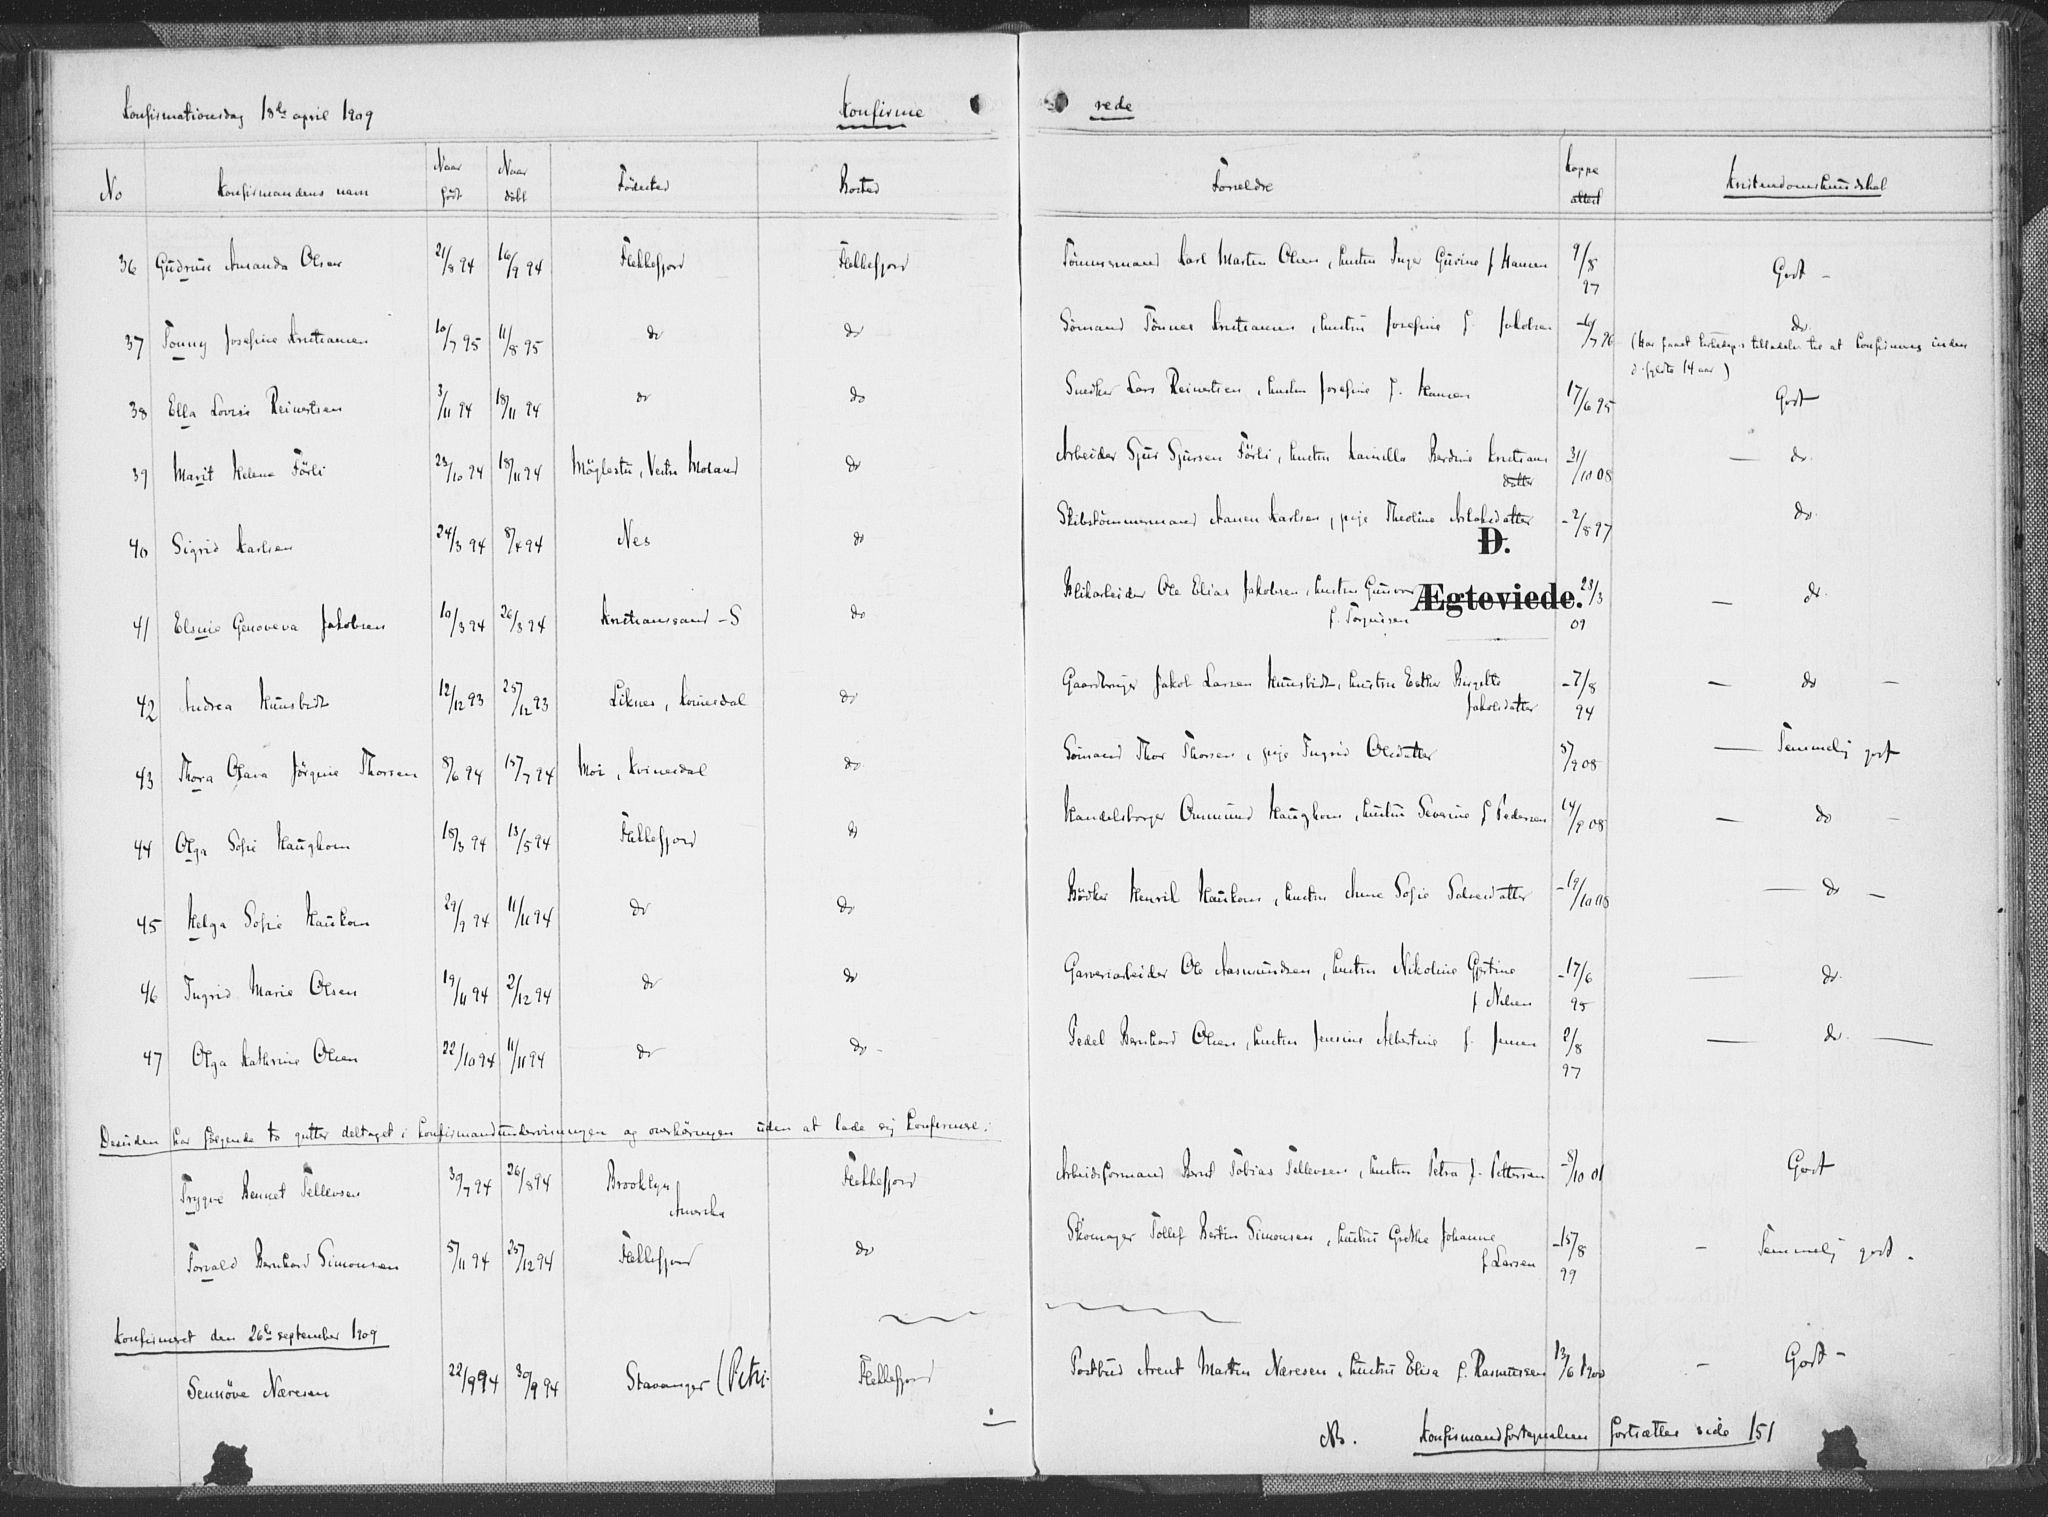 Konfirmationsdag 18de april 1909 Konfirme rede
No Konfirmandens navn Naar født Naar døbt Fødested Bosted Forældre Koppe attest Kristendomskundskab
36 Gudrun Amanda Olsen 21/8 94 16/9 94 Flekkefjord Flekkefjord Tømmermand Karl Martin Olsen, hustru Inger Gurine f. Hansen 9/8 97 Godt –
37 Tonny Josefine Kristiansen 10/7 95 11/8 95 do do Sømand Tønnes Kristiansen, hustru Josefine f. Jakobsen 7 96 do.
(Har faaet tilladelse til at konfirmeres inden
d. fyldte 14 aar)
38 Ella Lovise Reinertsen 3/11 94 18/11 94 do do Snedker Lars Reinertsen, hustru Josefine f. Hansen 17/6 95 Godt
39 Marit Helene Förli 23/10 94 18/11 94 Möglestu, Vestre Moland do Arbeider Sjur Sjursen Förli, hustru Kamilla Berdine Kristians
datter 31/10 08 — do.
40 Sigrid Karlsen 24/3 94 8/4 94 Nes do Skibstömmermand Aanen Karlsen, pige Theoline Aslaksdatter – 2/8 97 do.
D.
Ægteviede.
41 Elsine Genoveva Jakobsen 10/3 94 26/3 94 Kristianssand – S do Blikarbeider Ole Elias Jakobsen, hustru Gunvor
f. Torjussen 23/3 09 — do.
42 Andrea Hunsbedt 12/12 93 25/12 93 Liknes, Kvinesdal do Gaardbruger Jakob Larsen Hunsbedt, hustru Esther Birgitte
Jakobsdatter – 7/8 94 — do —
43 Thora Olava Jörgine Thorsen 8/6 94 15/7 94 Moi, Kvinesdal do. Sömand Thor Thorsen, pige Ingrid Olsdatter 5/9 08 — Temmelig godt
44 Olga Sofie Haughom 18/3 94 13/5 94 Flekkefjord do Handelsborger Ommund Haughom, hustru Severine f. Pedersen 14/9 08 — do —
45 Helga Sofie Haukom 29/9 94 11/11 94 do do Bödker Henrik Haukom, hustru Anne Sofie Salvesdatter – 19/10 08 — do —
46 Ingrid Marie Olsen 19/11 94 2/12 94 do do Garveriarbeider Ole Aasmundsen, hustru Nikoline Gjertine
f. Nilsen – 17/6 95 — do.
47 Olga Kathrine Olsen 22/10 94 11/11 94 do do – Pedel Bernhard Olsen, hustru Jensine Albertine f. Jensen 2/8 97 — do. —
Desuden har følgende to gutter deltaget i konfirmandundervisningen og overhøringen uden at lade sig konfirmere:
Trygve Bennet Tellevsen 30/7 94 26/8 94 Brooklyn
Amerika Flekkefjord Arbeidsformand Bernt Tobias Tellevsen, hustru Petra f. Pettersen – 8/10 01 Godt
Torvald Bernhard Simonsen 5/11 94 25/12 94 Flekkefjord do Skomager Tollef Bertin Simonsen, hustru Grethe Johanne
f. Larsen – 15/8 99 – Temmelig godt –
Konfirmeret den 26de september 1909
Sennöve Næresen 22/9 94 30/9 94 Stavanger (Petri Flekkefjord Postbud Arent Martin Næresen, hustru Elisa f. Rasmussen 13/6 1900 – Godt –
NB. Konfirmandfortegnelsen fortsættes side 151